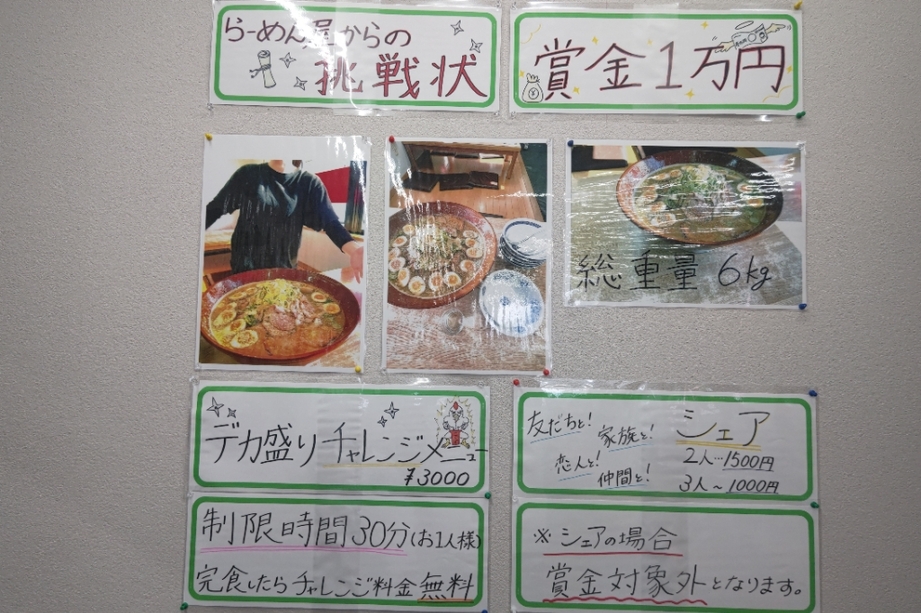 らーめん屋からの
挑戦状
賞金1万円
総重量 6kg
デカ盛りチャレンジメニュー
¥3000
制限時間30分(お1人様)
完食したらチャレンジ料金無料
友だちと!
家族と!
恋人と!
仲間と!
シェア
2人…1500円
3人~1000円
※シェアの場合
賞金対象外となります。